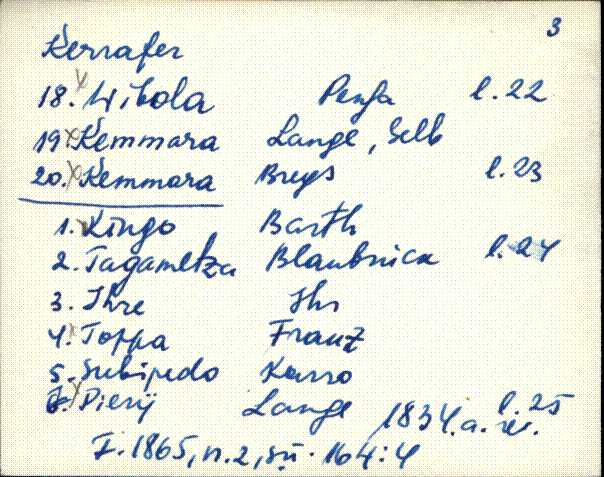 3
Kerrafer
18. Wibola Penja l.22
19 Kemmara Lange, Selb
20. Kemmara Breys l.23
1. Kingo Barth
2. Tagametza l.24
3. Ihre Ihr
4. Toppa Franz
5. Subipedo Karro
6. Pierij Lange l.25
1834. a. rev.
F. 1865, n.2, sü. 164:4